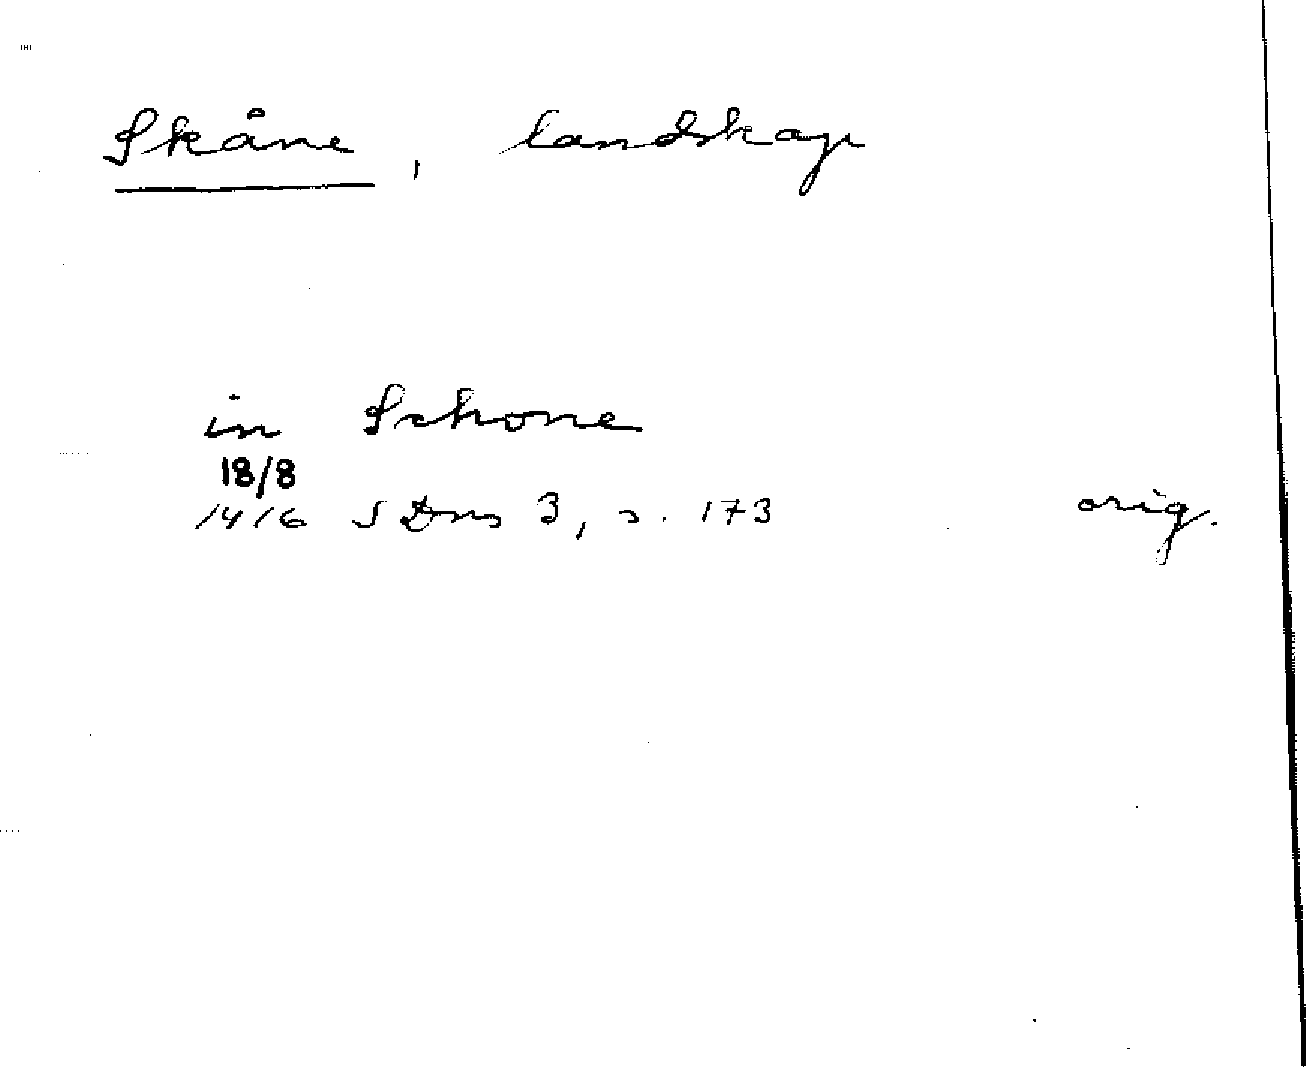 Skåne, landskap
in Schone
18/8
1416 SDns 3, s. 173 orig.